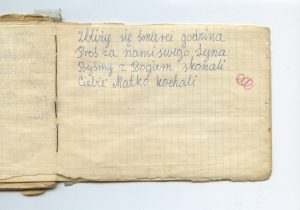 Zbliży się śmierci godzina
Proś za nami swego Syna
Byśmy z Bogiem skonali
Ciebie Matko kochali